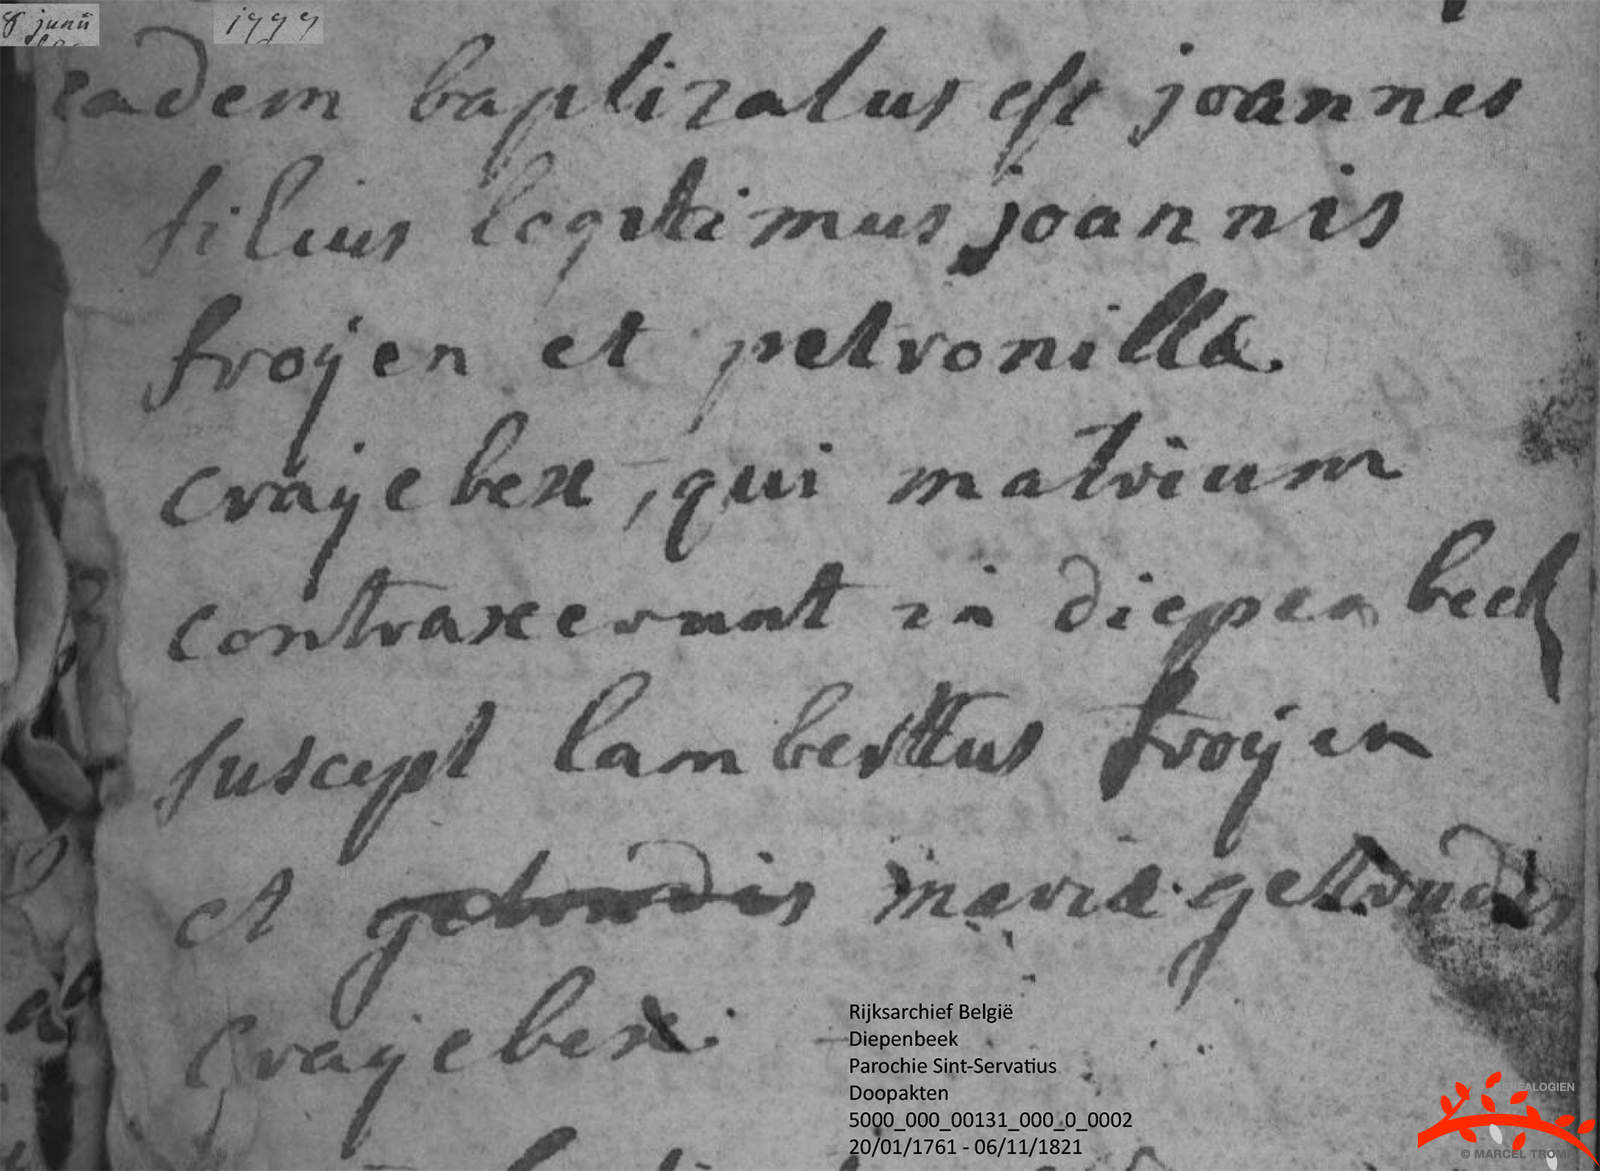 8 junii 1797
eadem baptizatus est joannes
filius legitimus joannis
froÿen et petronilla
craÿebex, qui matrium
contraxerunt in diepenbeek
suscept lamberttus froÿen
et getrudis maria getrudis
craÿebex.
Rijksarchief België
Diepenbeek
Parochie Sint-Servatius
Doopakten
5000_000_00131_000_0_0002
20/01/1761 - 06/11/1821
GENEALOGIEN
© MARCEL TROMP